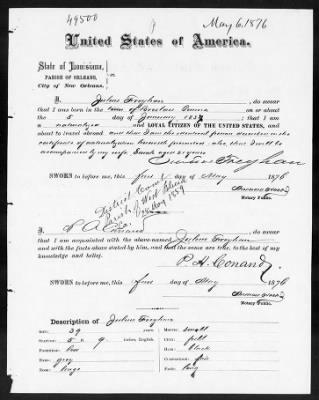 49500
May 6, 1876
United States of America.
State of Louisiana,
PARISH OF ORLEANS,
City of New Orleans.
I, Julius Freyhan, do swear
that I was born in the town of on or about
the 5 day of January 1837; that I am
a naturalized and LOYAL CITIZEN OF THE UNITED STATES, and
about to travel abroad and that I am the identical person described in the
certificate of naturalization herewith presented also that I will be
accompanied by my wife Sarah aged
Julius Freyhan
SWORN to before me, this first day of May 1876
Notary Public.
District Court
Parish of West Feliciana
1859
I, do swear
that I am acquainted with the above named Julius Freyhan
and with the facts above stated by him, and that the same are true, to the best of my
knowledge and belief.
P. H. Conand
SWORN to before me, this first day of May 1876
Notary Public.
Description of Julius Freyhan
Age: 39
Stature: 5 " 9 inches, English.
Eyes: grey
Nose: large
Mouth: small
Chin:
Hair: black
Complexion: fair
Face: long